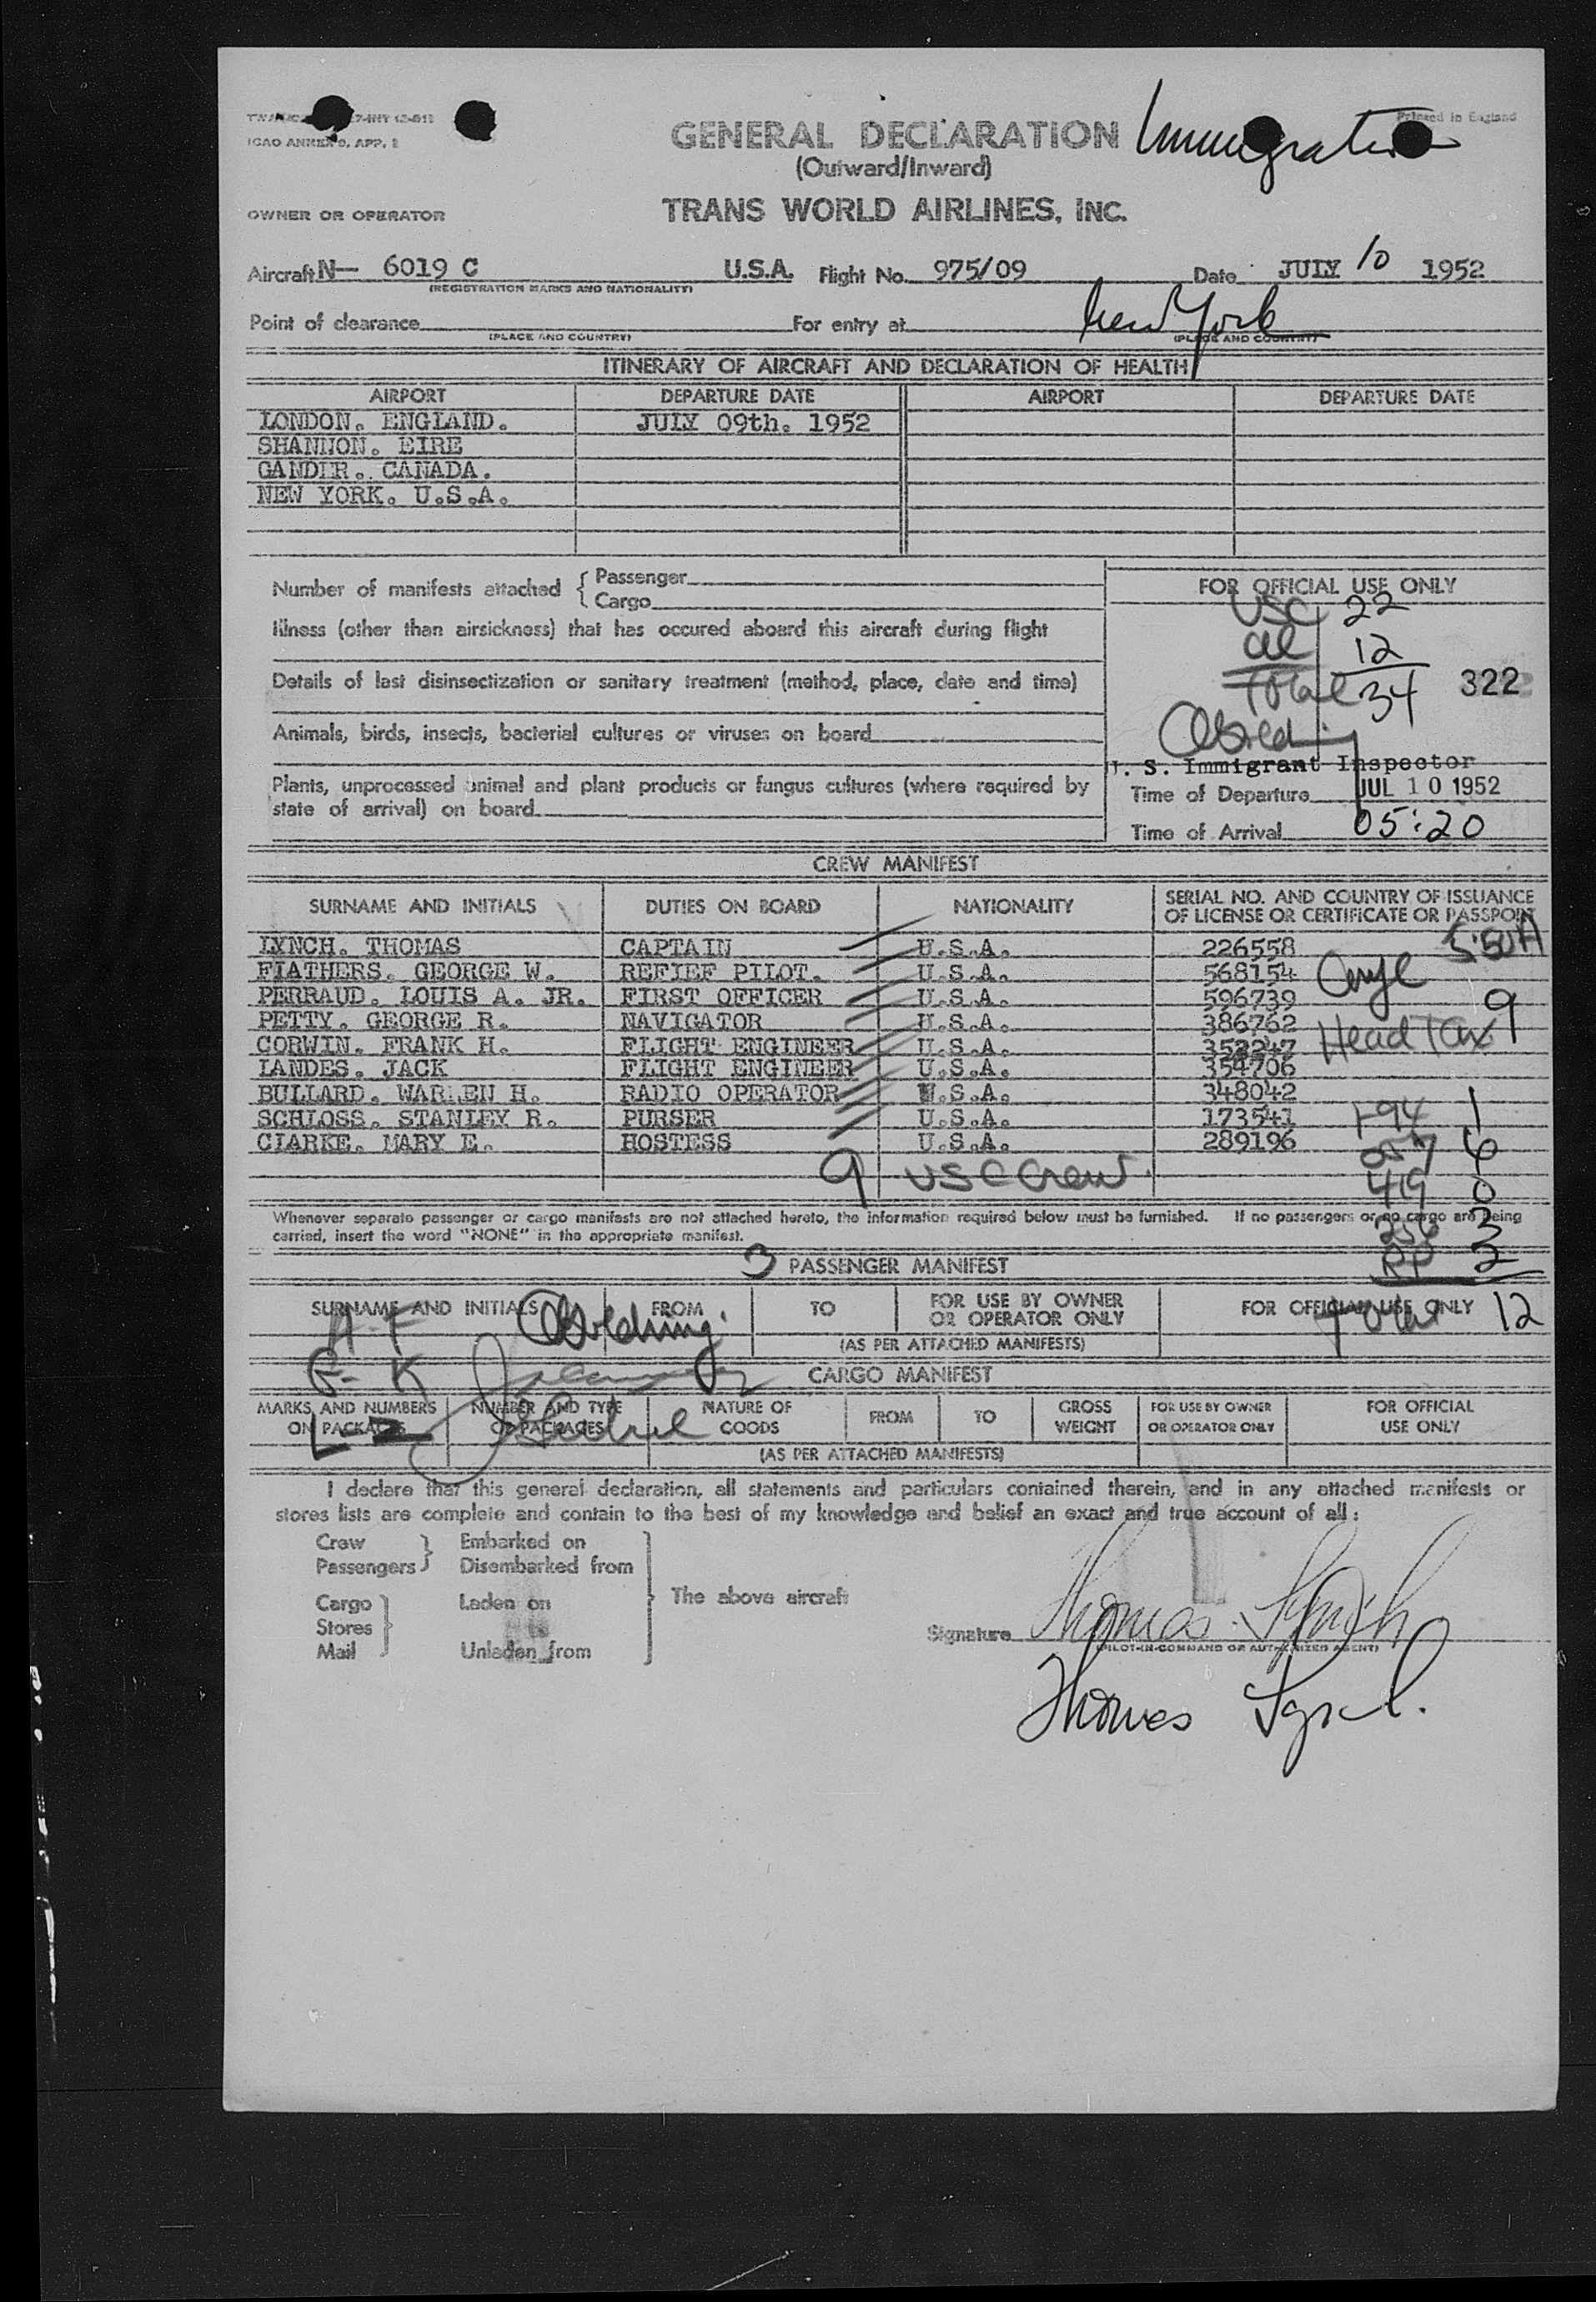 ICAO ANNEX 9, APP. 1
Printed in England
GENERAL DECLARATION Immigration
(Outward/Inward)
OWNER OR OPERATOR TRANS WORLD AIRLINES, INC.
Aircraft N— 6019 C U.S.A. Flight No. 975/09 Date JULY 10 1952
(REGISTRATION MARKS AND NATIONALITY)
Point of clearance For entry at New York
(PLACE AND COUNTRY) (PLACE AND COUNTRY)
ITINERARY OF AIRCRAFT AND DECLARATION OF HEALTH
AIRPORT DEPARTURE DATE AIRPORT DEPARTURE DATE
LONDON. ENGLAND. JULY 09th. 1952
SHANNON. EIRE
GANDER. CANADA.
NEW YORK. U.S.A.
Number of manifests attached { Passenger
Cargo
FOR OFFICIAL USE ONLY
USC 22
al 12
Total 34 322
Illness (other than airsickness) that has occured aboard this aircraft during flight
Details of last disinsectization or sanitary treatment (method, place, date and time)
Animals, birds, insects, bacterial cultures or viruses on board
Plants, unprocessed animal and plant products or fungus cultures (where required by
state of arrival) on board
U. S. Immigrant Inspector
Time of Departure JUL 10 1952
Time of Arrival 05:20
CREW MANIFEST
SURNAME AND INITIALS DUTIES ON BOARD NATIONALITY SERIAL NO. AND COUNTRY OF ISSUANCE
OF LICENSE OR CERTIFICATE OR PASSPORT
LYNCH. THOMAS CAPTAIN U.S.A. 226558 5:50A
FEATHERS. GEORGE W. REFIEF PILOT. U.S.A. 568154
PERRAUD. LOUIS A. JR. FIRST OFFICER U.S.A. 596739
PETTY. GEORGE R. NAVIGATOR U.S.A. 386762
CORWIN. FRANK H. FLIGHT ENGINEER U.S.A. 352247 Head Tax 9
LANDES. JACK FLIGHT ENGINEER U.S.A. 354706
BULLARD. WARREN H. RADIO OPERATOR U.S.A. 348042
SCHLOSS. STANLEY R. PURSER U.S.A. 173541 I-94 1
CLARKE. MARY E. HOSTESS U.S.A. 289196 257 6
9 USC Crew. 419 0
Whenever separate passenger or cargo manifests are not attached hereto, the information required below must be furnished. If no passengers or no cargo are being
carried, insert the word "NONE" in the appropriate manifest.
256 3
RP 2
3 PASSENGER MANIFEST
SURNAME AND INITIALS FROM TO FOR USE BY OWNER
OR OPERATOR ONLY FOR OFFICIAL USE ONLY
Total 12
A-F
(AS PER ATTACHED MANIFESTS)
G-K
CARGO MANIFEST
L-Z
MARKS AND NUMBERS
ON PACKAGES NUMBER AND TYPE
OF PACKAGES NATURE OF
GOODS FROM TO GROSS
WEIGHT FOR USE BY OWNER
OR OPERATOR ONLY FOR OFFICIAL
USE ONLY
(AS PER ATTACHED MANIFESTS)
I declare that this general declaration, all statements and particulars contained therein, and in any attached manifests or
stores lists are complete and contain to the best of my knowledge and belief an exact and true account of all :
Crew
Passengers } Embarked on
Disembarked from
Cargo
Stores
Mail } Laden on
Unladen from
The above aircraft
Signature Thomas Lynch
(PILOT-IN-COMMAND OR AUTHORIZED AGENT)
Thomas Lynch.